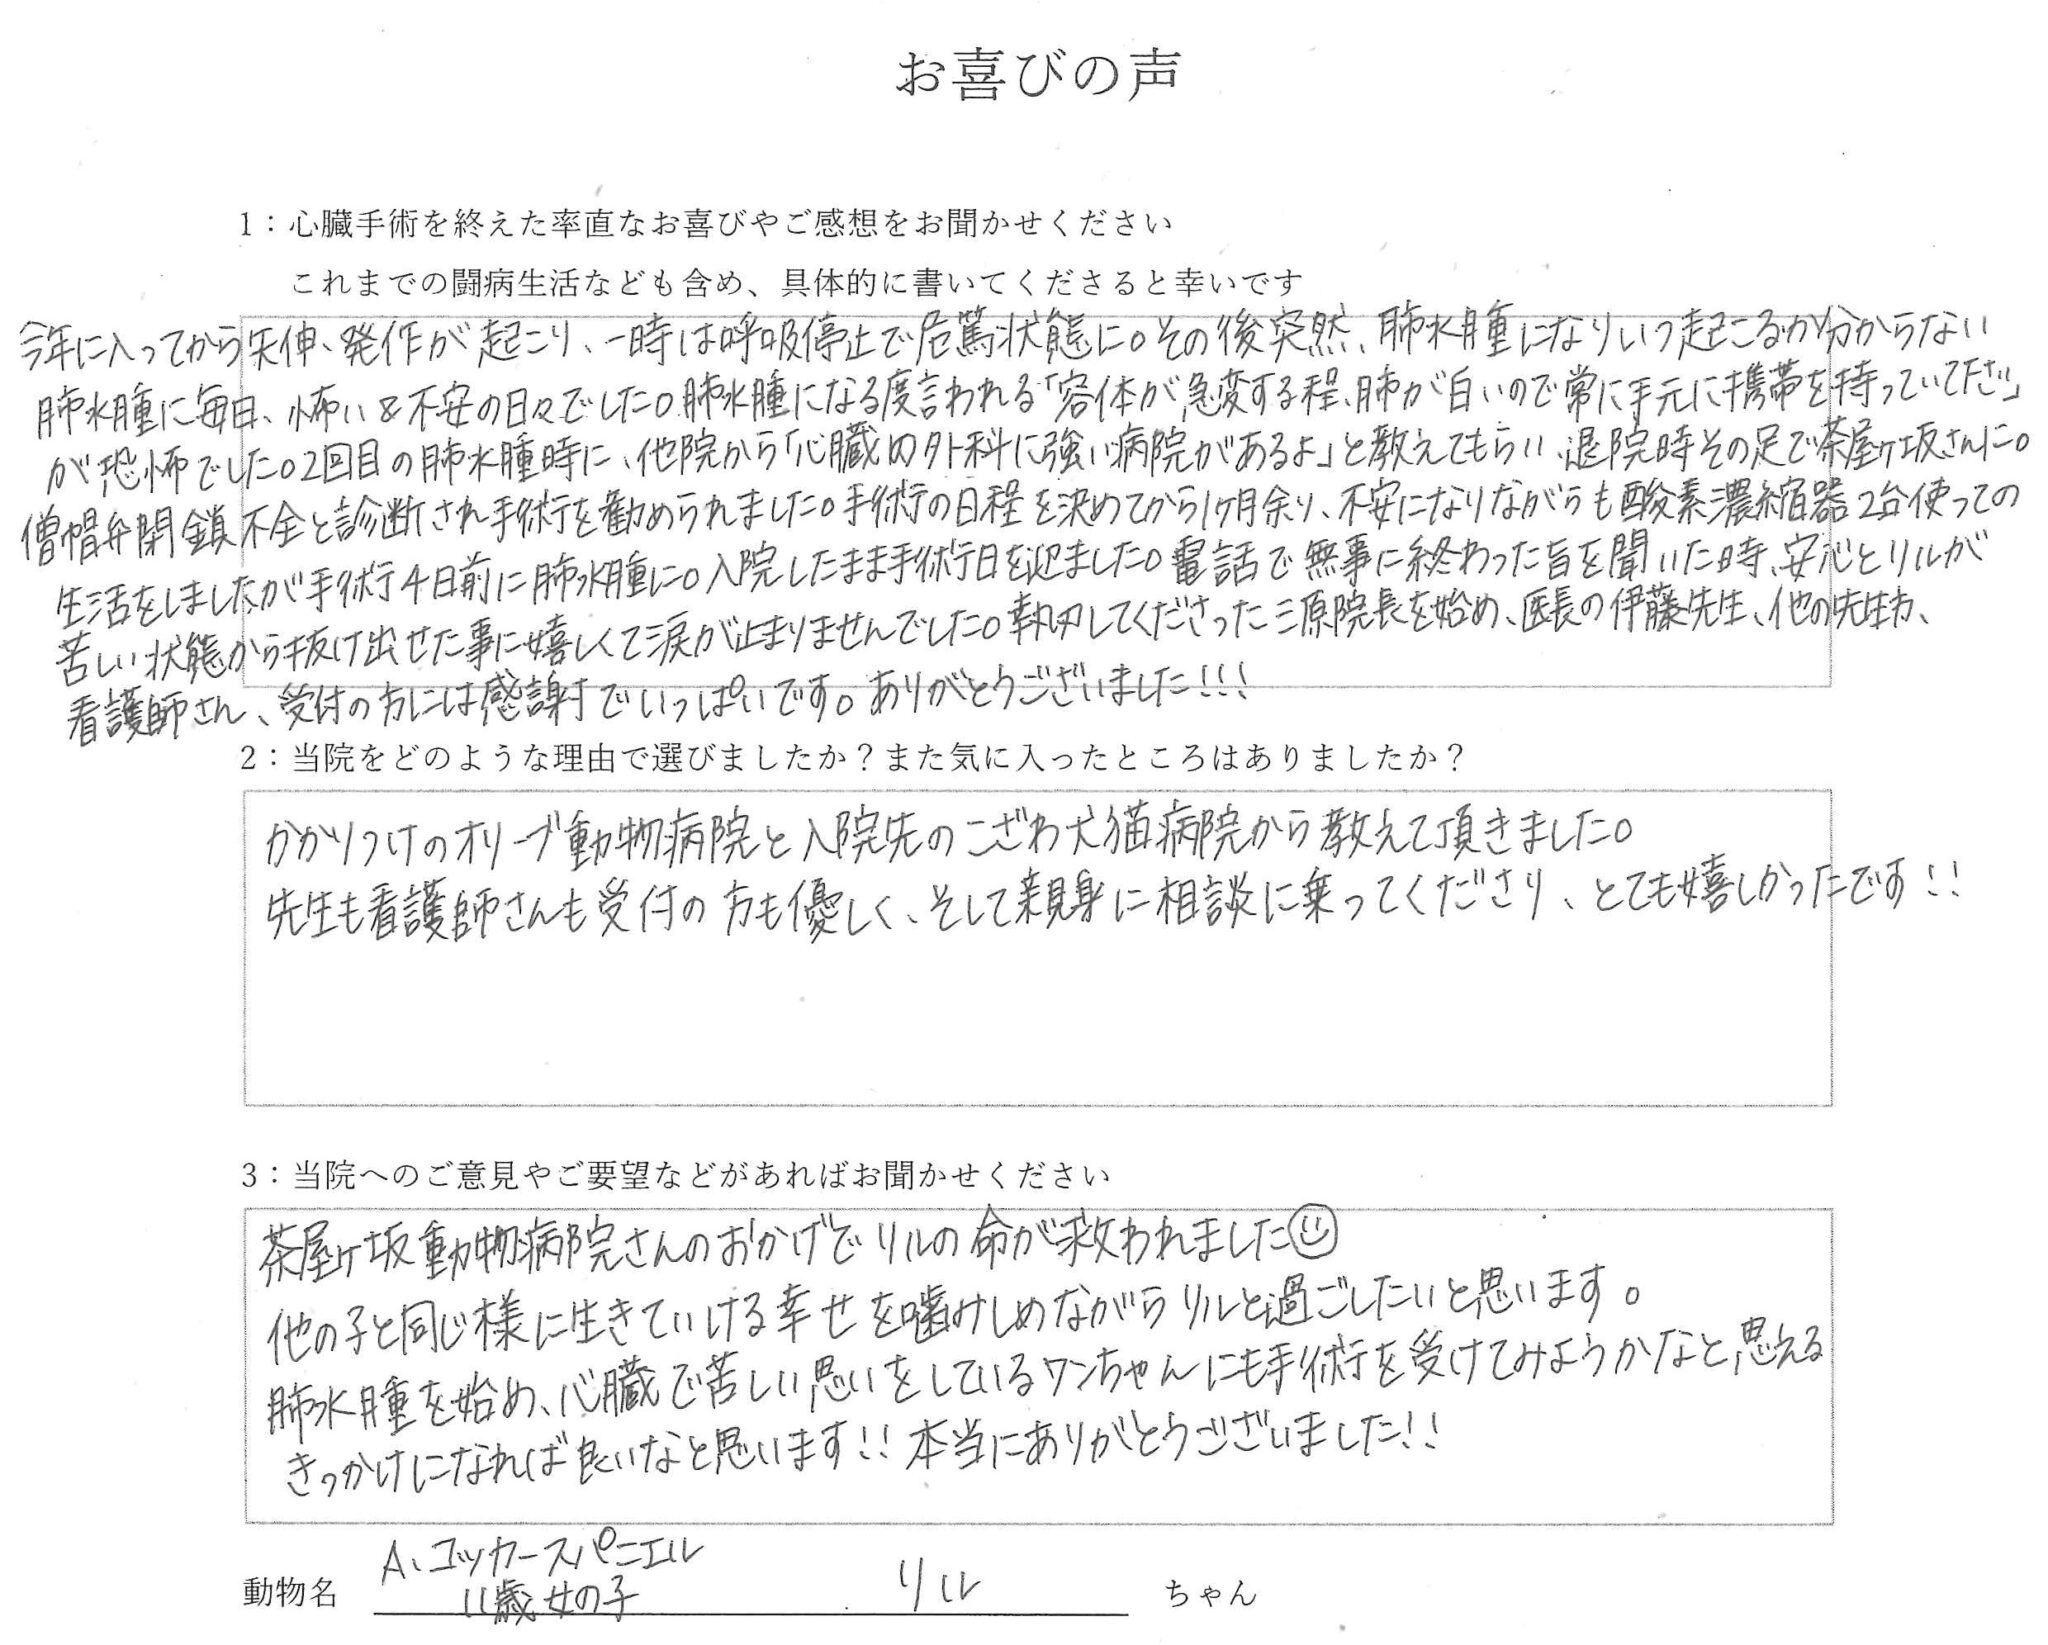 お喜びの声
1：心臓手術を終えた率直なお喜びやご感想をお聞かせください
これまでの闘病生活なども含め、具体的に書いてくださると幸いです
今年に入ってから失伸、発作が起こり、一時は呼吸停止で危篤状態に。その後突然、肺水腫になりいつ起こるか分からない
肺水腫に毎日、怖い&不安の日々でした。肺水腫になる度言われる「容体が急変する程、肺が白いので常に手元に携帯を持っていて下さい」
が恐怖でした。2回目の肺水腫時に、他院から「心臓の外科に強い病院があるよ」と教えてもらい、退院時その足で茶屋ヶ坂さんに。
僧帽弁閉鎖不全と診断され手術を勧められました。手術の日程を決めてから1ヶ月余り、不安になりながらも酸素濃縮器2台使っての
生活をしましたが手術4日前に肺水腫に。入院したまま手術日を迎ました。電話で無事に終わった旨を聞いた時、安心とリルが
苦しい状態から抜け出せた事に嬉しくて涙が止まりませんでした。執刀してくださった三原院長を始め、医長の伊藤先生、他の先生方、
看護師さん、受付の方には感謝でいっぱいです。ありがとうございました!!!
2：当院をどのような理由で選びましたか？また気に入ったところはありましたか？
かかりつけのオリーブ動物病院と入院先のこざわ犬猫病院から教えて頂きました。
先生も看護師さんも受付の方も優しく、そして親身に相談に乗ってくださり、とても嬉しかったです!!
3：当院へのご意見やご要望などがあればお聞かせください
茶屋ヶ坂動物病院さんのおかげでリルの命が救われました☺
他の子と同じ様に生きていける幸せを噛みしめながらリルと過ごしたいと思います。
肺水腫を始め、心臓で苦しい思いをしているワンちゃんにも手術を受けてみようかなと思える
きっかけになれば良いなと思います!! 本当にありがとうございました!!
A、コッカースパニエル
動物名 11歳女の子 リル ちゃん